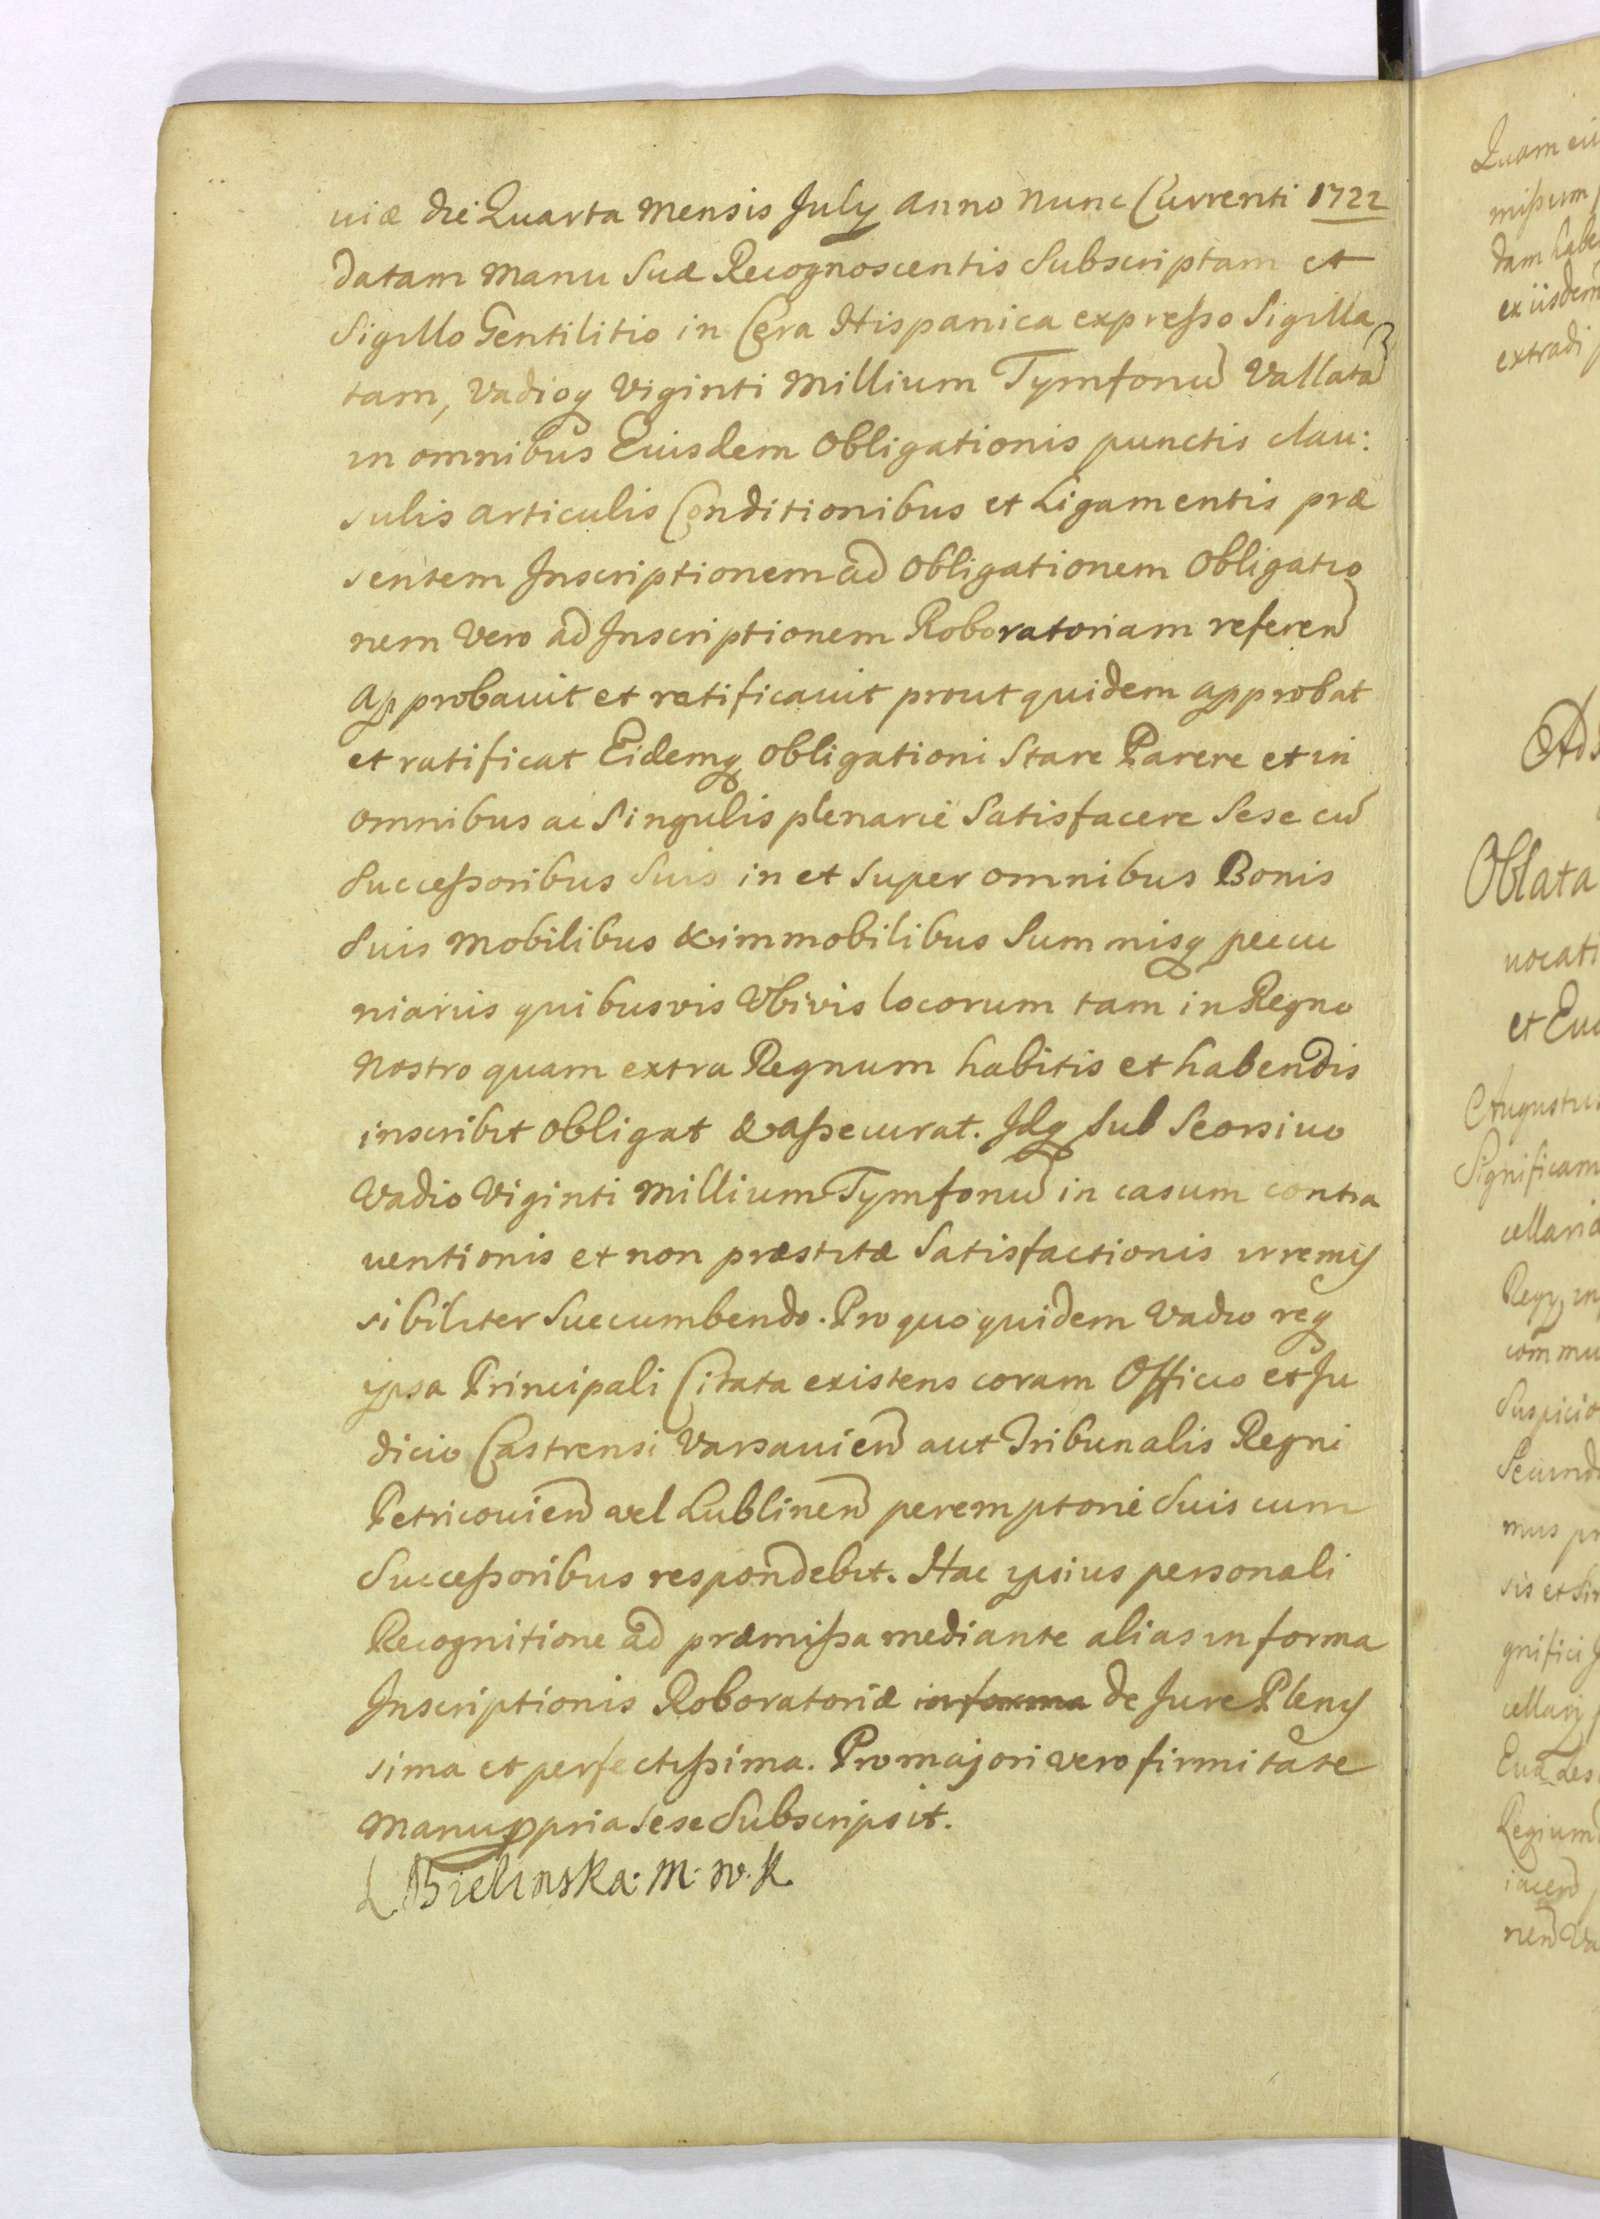 uiæ die Quarta Mensis July Anno Nunc Currenti 1722
datam Manu Suæ Recognoscentis Subscriptam et
Sigillo Gentilitio in Cera Hispanica expresso Sigilla
tam, Vadioq Viginti Millium Tymfonũ Vallatã
in omnibus Eiusdem Obligationis punctis clau:
sulis articulis Conditionibus et Ligamentis præ
sentem Inscriptionem ad Obligationem Obligatio
nem Vero ad Inscriptionem Roboratoriam referen̄
approbauit et ratificauit prout quidem approbat
et ratificat Eidemq Obligationi Stare Parere et in
omnibus ac Singulis plenarie Satisfacere Sese cũ
Successoribus Suis in et Super omnibus Bonis
Suis Mobilibus & immobilibus Summisq pecu
niariis quibusvis Vbivis locorum tam in Regno
Nostro quam extra Regnum habitis et habendis
inscribit obligat & assecurat. Idq Sub Seorsiuo
Vadio Viginti Millium Tymfonũ in casum contra
uentionis et non præstitæ Satisfactionis irremis
sibiliter Succumbendo. Pro quo quidem Vadio req
ipsa Principali Citata existens coram Officio et Ju
dicio Castrensi Varsauien̄ aut Tribunalis Regni
Petricouien̄ vel Lublinen̄ peremptorie Suis cum
Successoribus respondebit. Hac ipsius personali
Recognitione ad præmissa mediante alias in forma
Inscriptionis Roboratoriæ in forma de Jure Plenis
sima et perfectissima. Pro majori vero firmitate
Manu ppria Sese Subscripsit.
L Bielinska: M. W. K.
Quam
missum
dam
ex iisdem
extradi
Ad
Oblata
uocati
et Eu
Augustus
Significam
cellari
Regy in
com̄mu
Suspicio
Secund
mus pr
sis et Si
gnifici
cellary
Regium
iacen̄
nen̄ Va